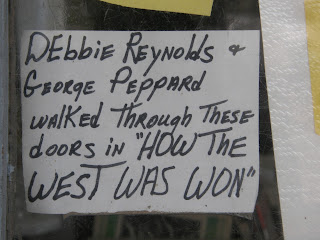 DEbbie REYNOLDS &
GEORGE PEPPARD
WALKED THROUGH THESE
dOORS IN "HOW THE
WEST WAS WON"